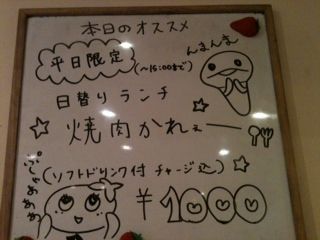 本日のオススメ
平日限定
(〜16:00まで)
んまんま
日替りランチ
焼肉かれぇー
(ソフトドリンク付 チャージ込)
¥1000